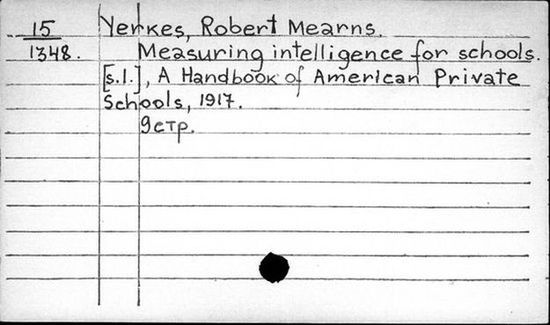 15 Yerkes, Robert Mearns.
1348. Measuring intelligence for schools.
[s.l.], A Handbook of American Private
Schools, 1917.
9стр.